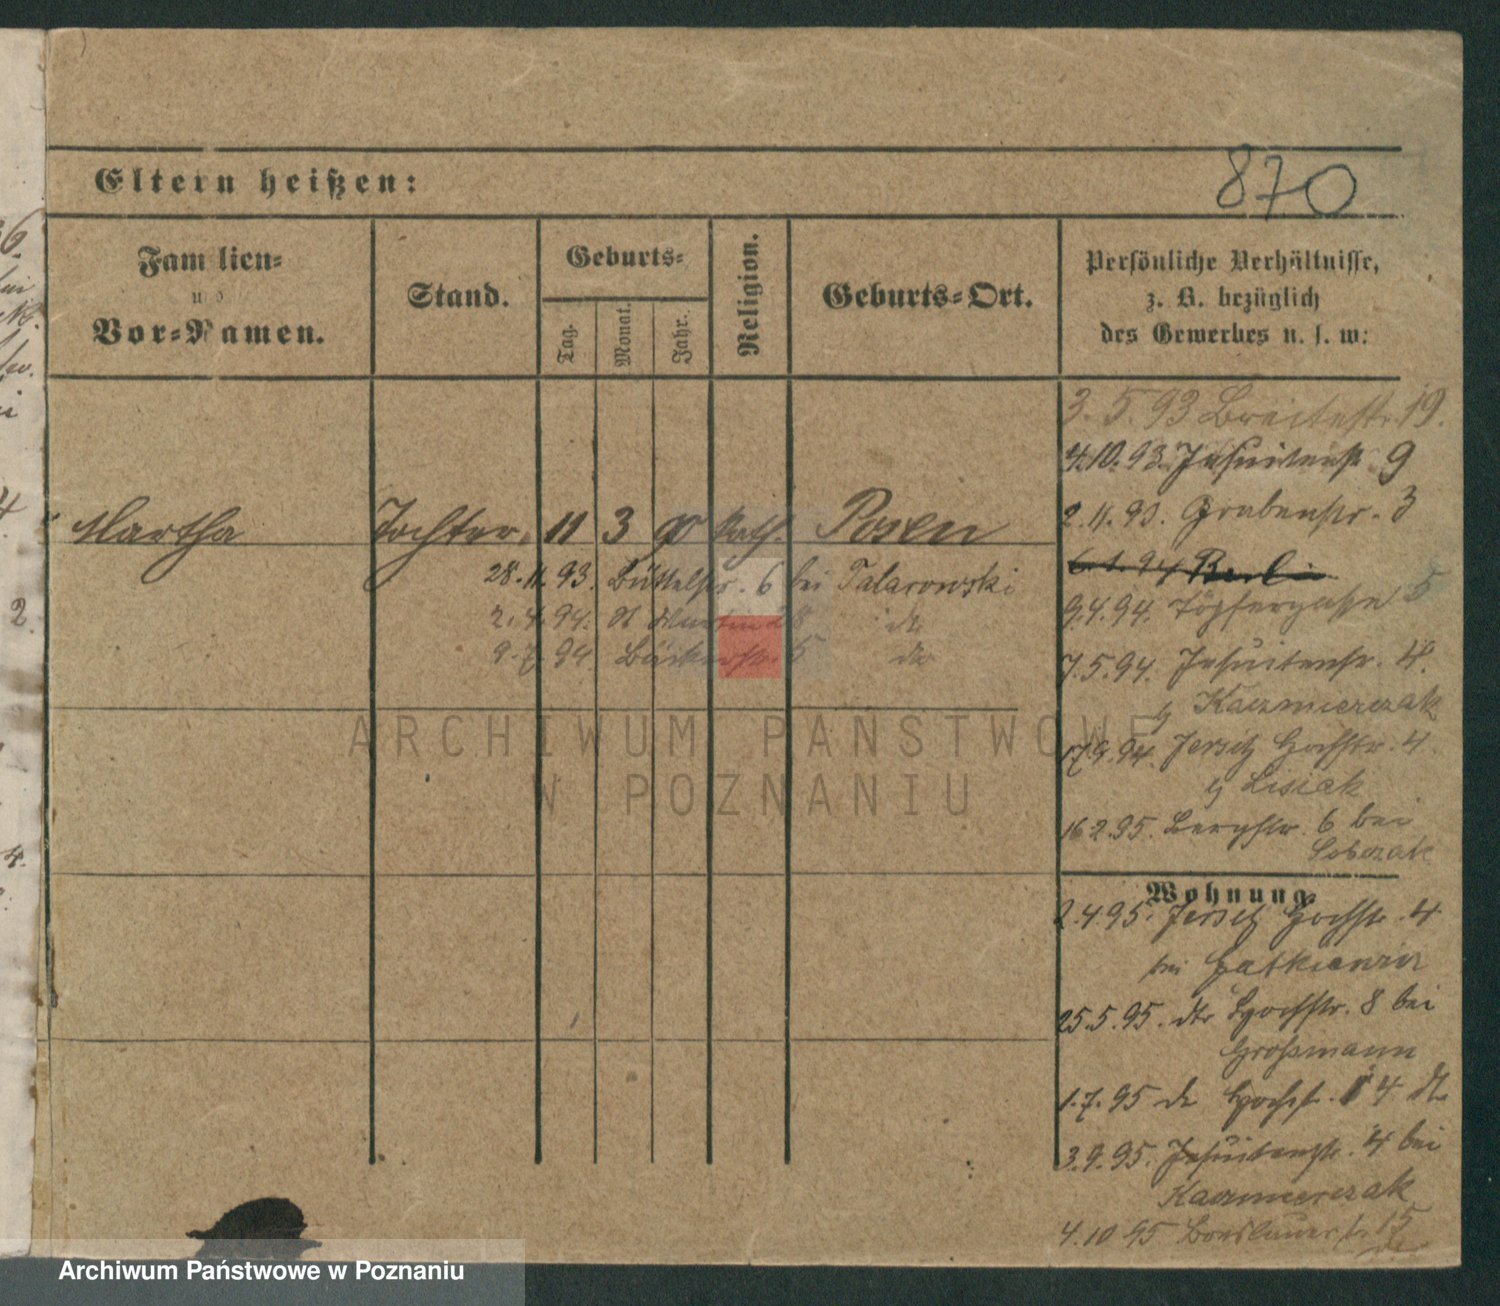 Eltern heißen:
870
Familien-
und
Vor-Namen.
Stand.
Geburts-
Tag.
Monat.
Jahr.
Religion.
Geburts-Ort.
Persönliche Verhältnisse,
z. B. bezüglich
des Gewerbes u. s. w:
3.5.93 Breitestr. 19.
4.10.93. Jesuitenstr 9
2.11.93. Grabenstr. 3
Martha Tochter. 11 3 90 kath. Posen
28.11.93. Büttelstr. 6 bei Talarowski
2.4.94. St Martin 28 do
9.7.94 Bäckerstr. 5 do
6.1.94 Berlin
9.4.94. Töpfergasse 5
7.5.94. Jesuitenstr. 4.
Kaczmierczak
17.9.94. Jersitz Hochstr. 4.
Lisiak
16.2.95. Bergstr. 6 bei
Sobczak
Wohnung.
2.4.95. Jersitz Hochstr. 4
bei
25.5.95. dto Hochstr. 8 bei
Großmann
1.7.95 do Hochstr. 4
3.9.95. Jesuitenstr. 4 bei
Kaczmierczak
4.10 95 Breslauerstr. 15
ARCHIWUM PAŃSTWOWE
W POZNANIU
Archiwum Państwowe w Poznaniu